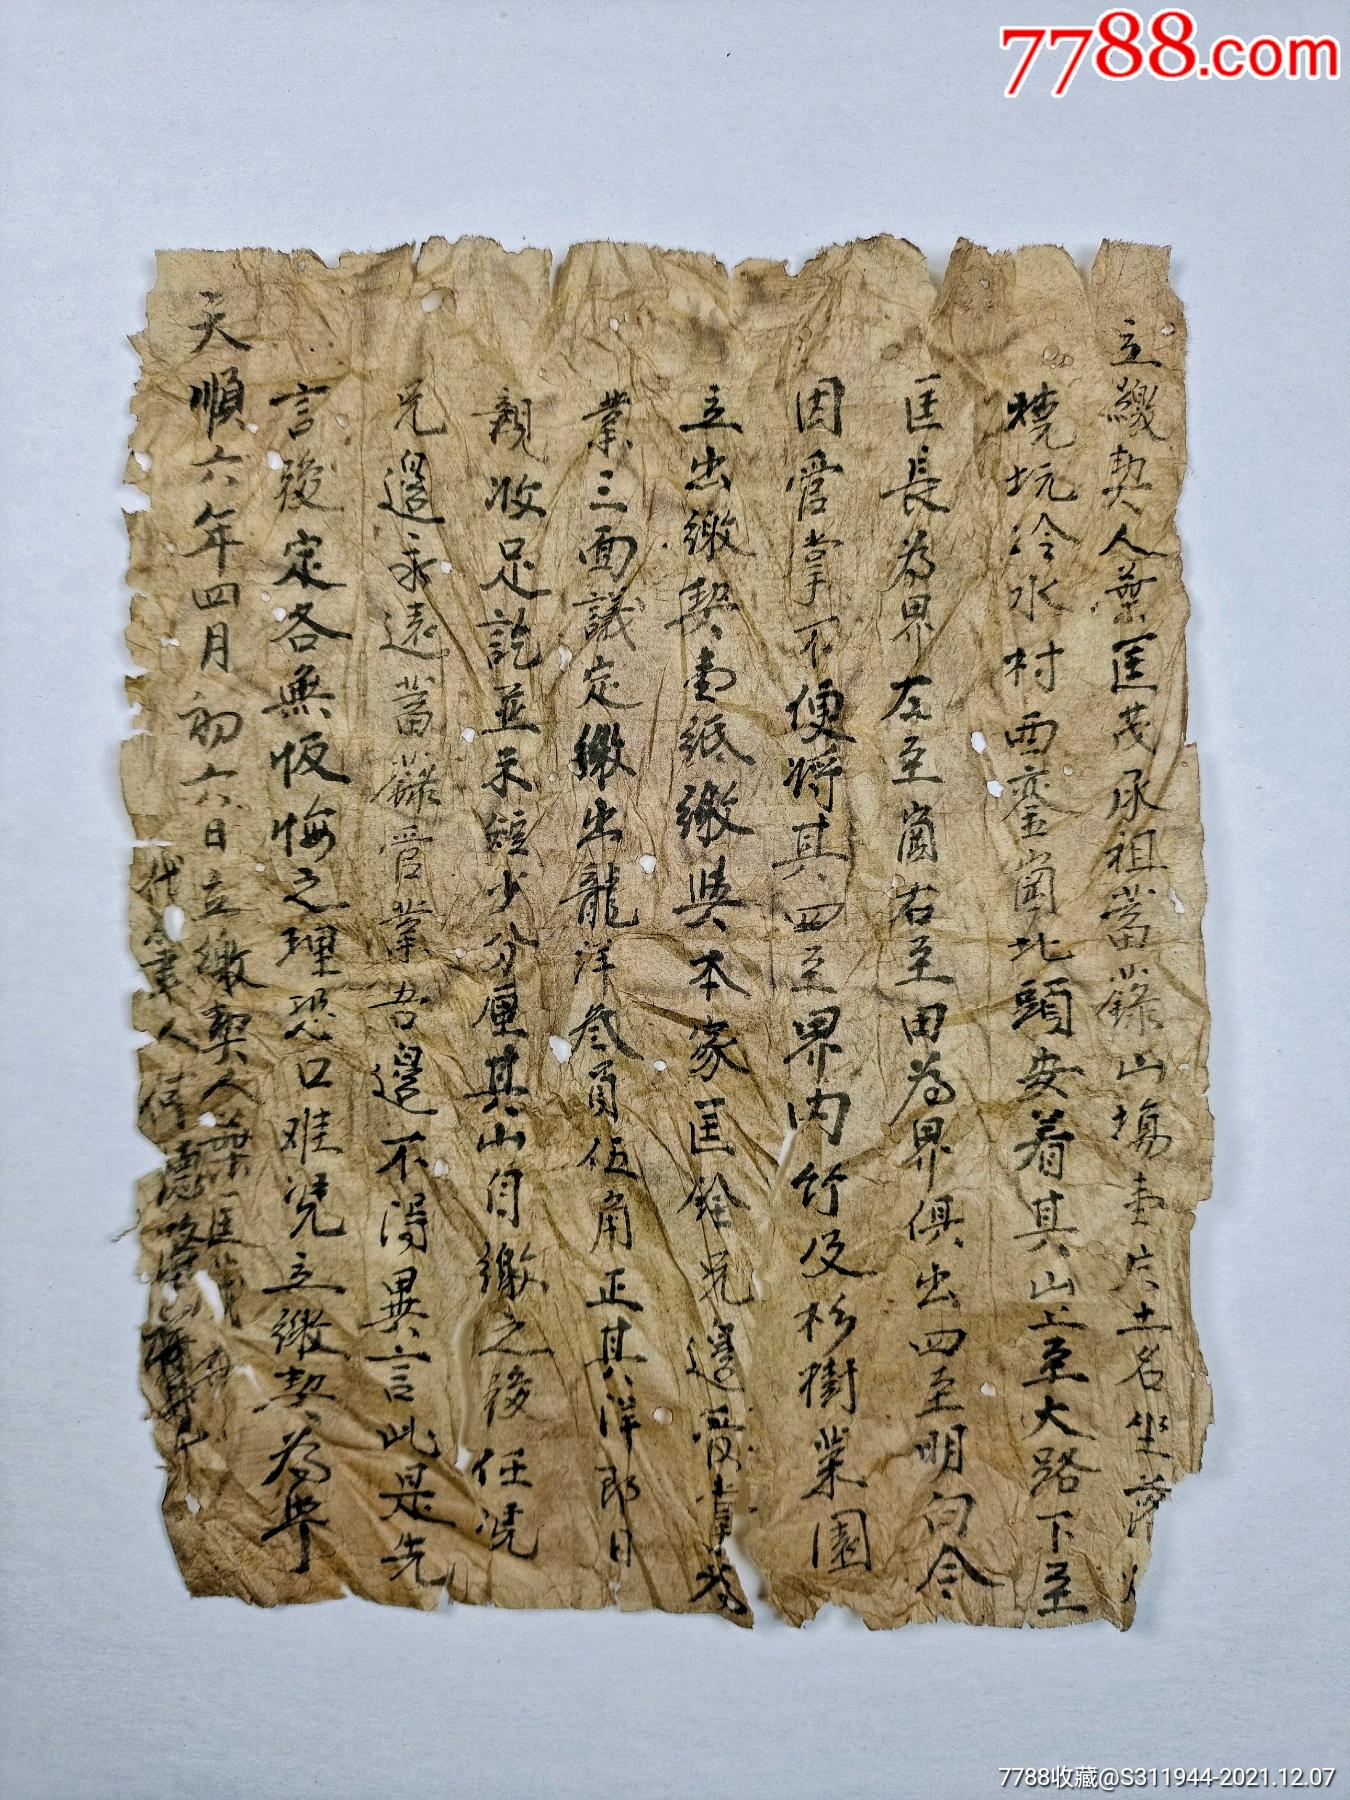 7788.com
立繳契人葉匡茂承祖蓄籙山塲壹片土名坐落
燒坑冷水村西窰崗北頭安着其山上至大路下至
匡長為界左至崗右至田為界俱出四至明白今
因管掌不便將其四至界內竹及杉樹業園
立出繳契壹紙繳與本家匡銓兄邊受掌為
業三面議定繳出龍洋叁員伍角正其洋郎日
親收足訖並未短少分厘其山自繳之後任凴
兄邊永遠蓄籙管業吾邊不得異言此是先
言後定各無皈悔之理恐口难凴立繳契為㨿
天順六年四月初六日立繳契人葉匡茂
代筆人
7788收藏@S311944-2021.12.07